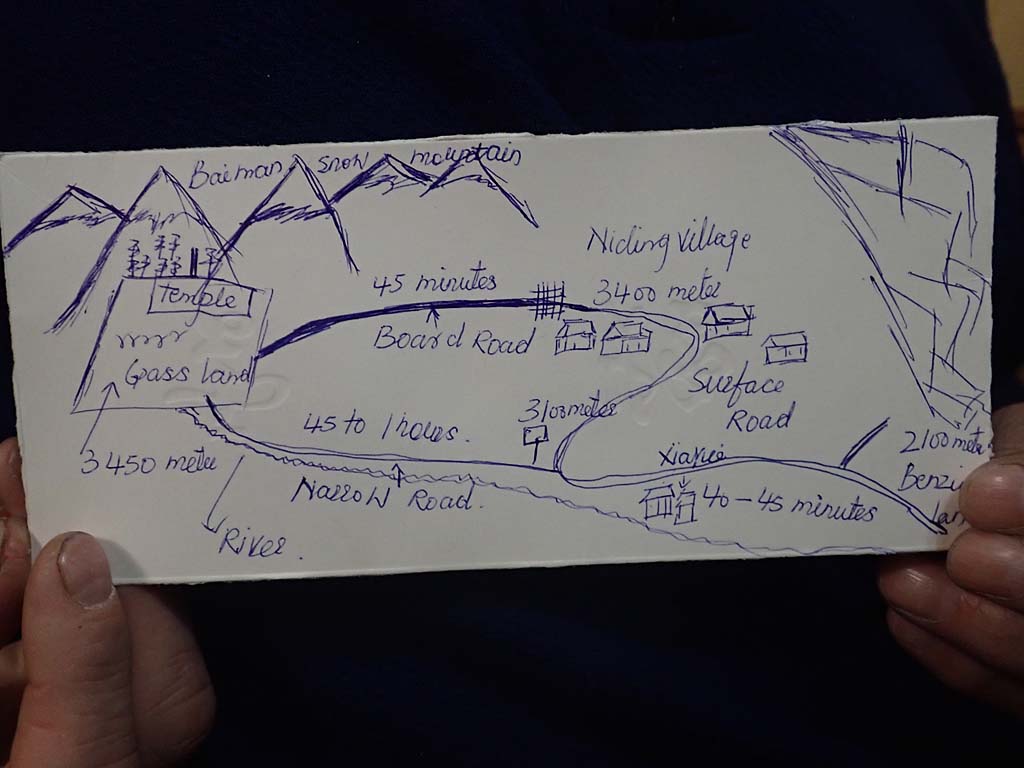 Baiman snow mountain
Niding village
45 minutes
3400 meter
Temple
Board Road
Gass land
Surface
Road
3100 meter
45 to 1 hours.
2100 mete
3450 meter
Xiajie
Benzi
Narrow Road.
40-45 minutes
lan
River.